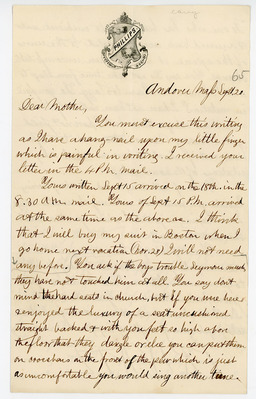 PHILLIPS
65
Andover Mass Sept 20
Dear Mother,
You must excuse this writing
as I have a hang-nail upon my little finger
which is painful in writing. I received your
letter in the 4 P.M. mail.
Yours written Sept 15 arrived on the 18th. in the
8.30 A.M. mail. Yours of Sept 15 P.M. arrived
at the same time as the above. I think
that I will buy my suit in Boston when I
go home next vacation (Nov 23) I will not need
any before. You ask if the boys trouble Seymour much
they have not touched him at all. You say don't
mind the hard seats in church, but if you were here
& enjoyed the luxury of a seat uncushioned
straight backed & with your feet so high above
the floor that they dangle or else you can put them
on crossbars on the front of the pew which is just
as uncomfortable you would sing another tune.